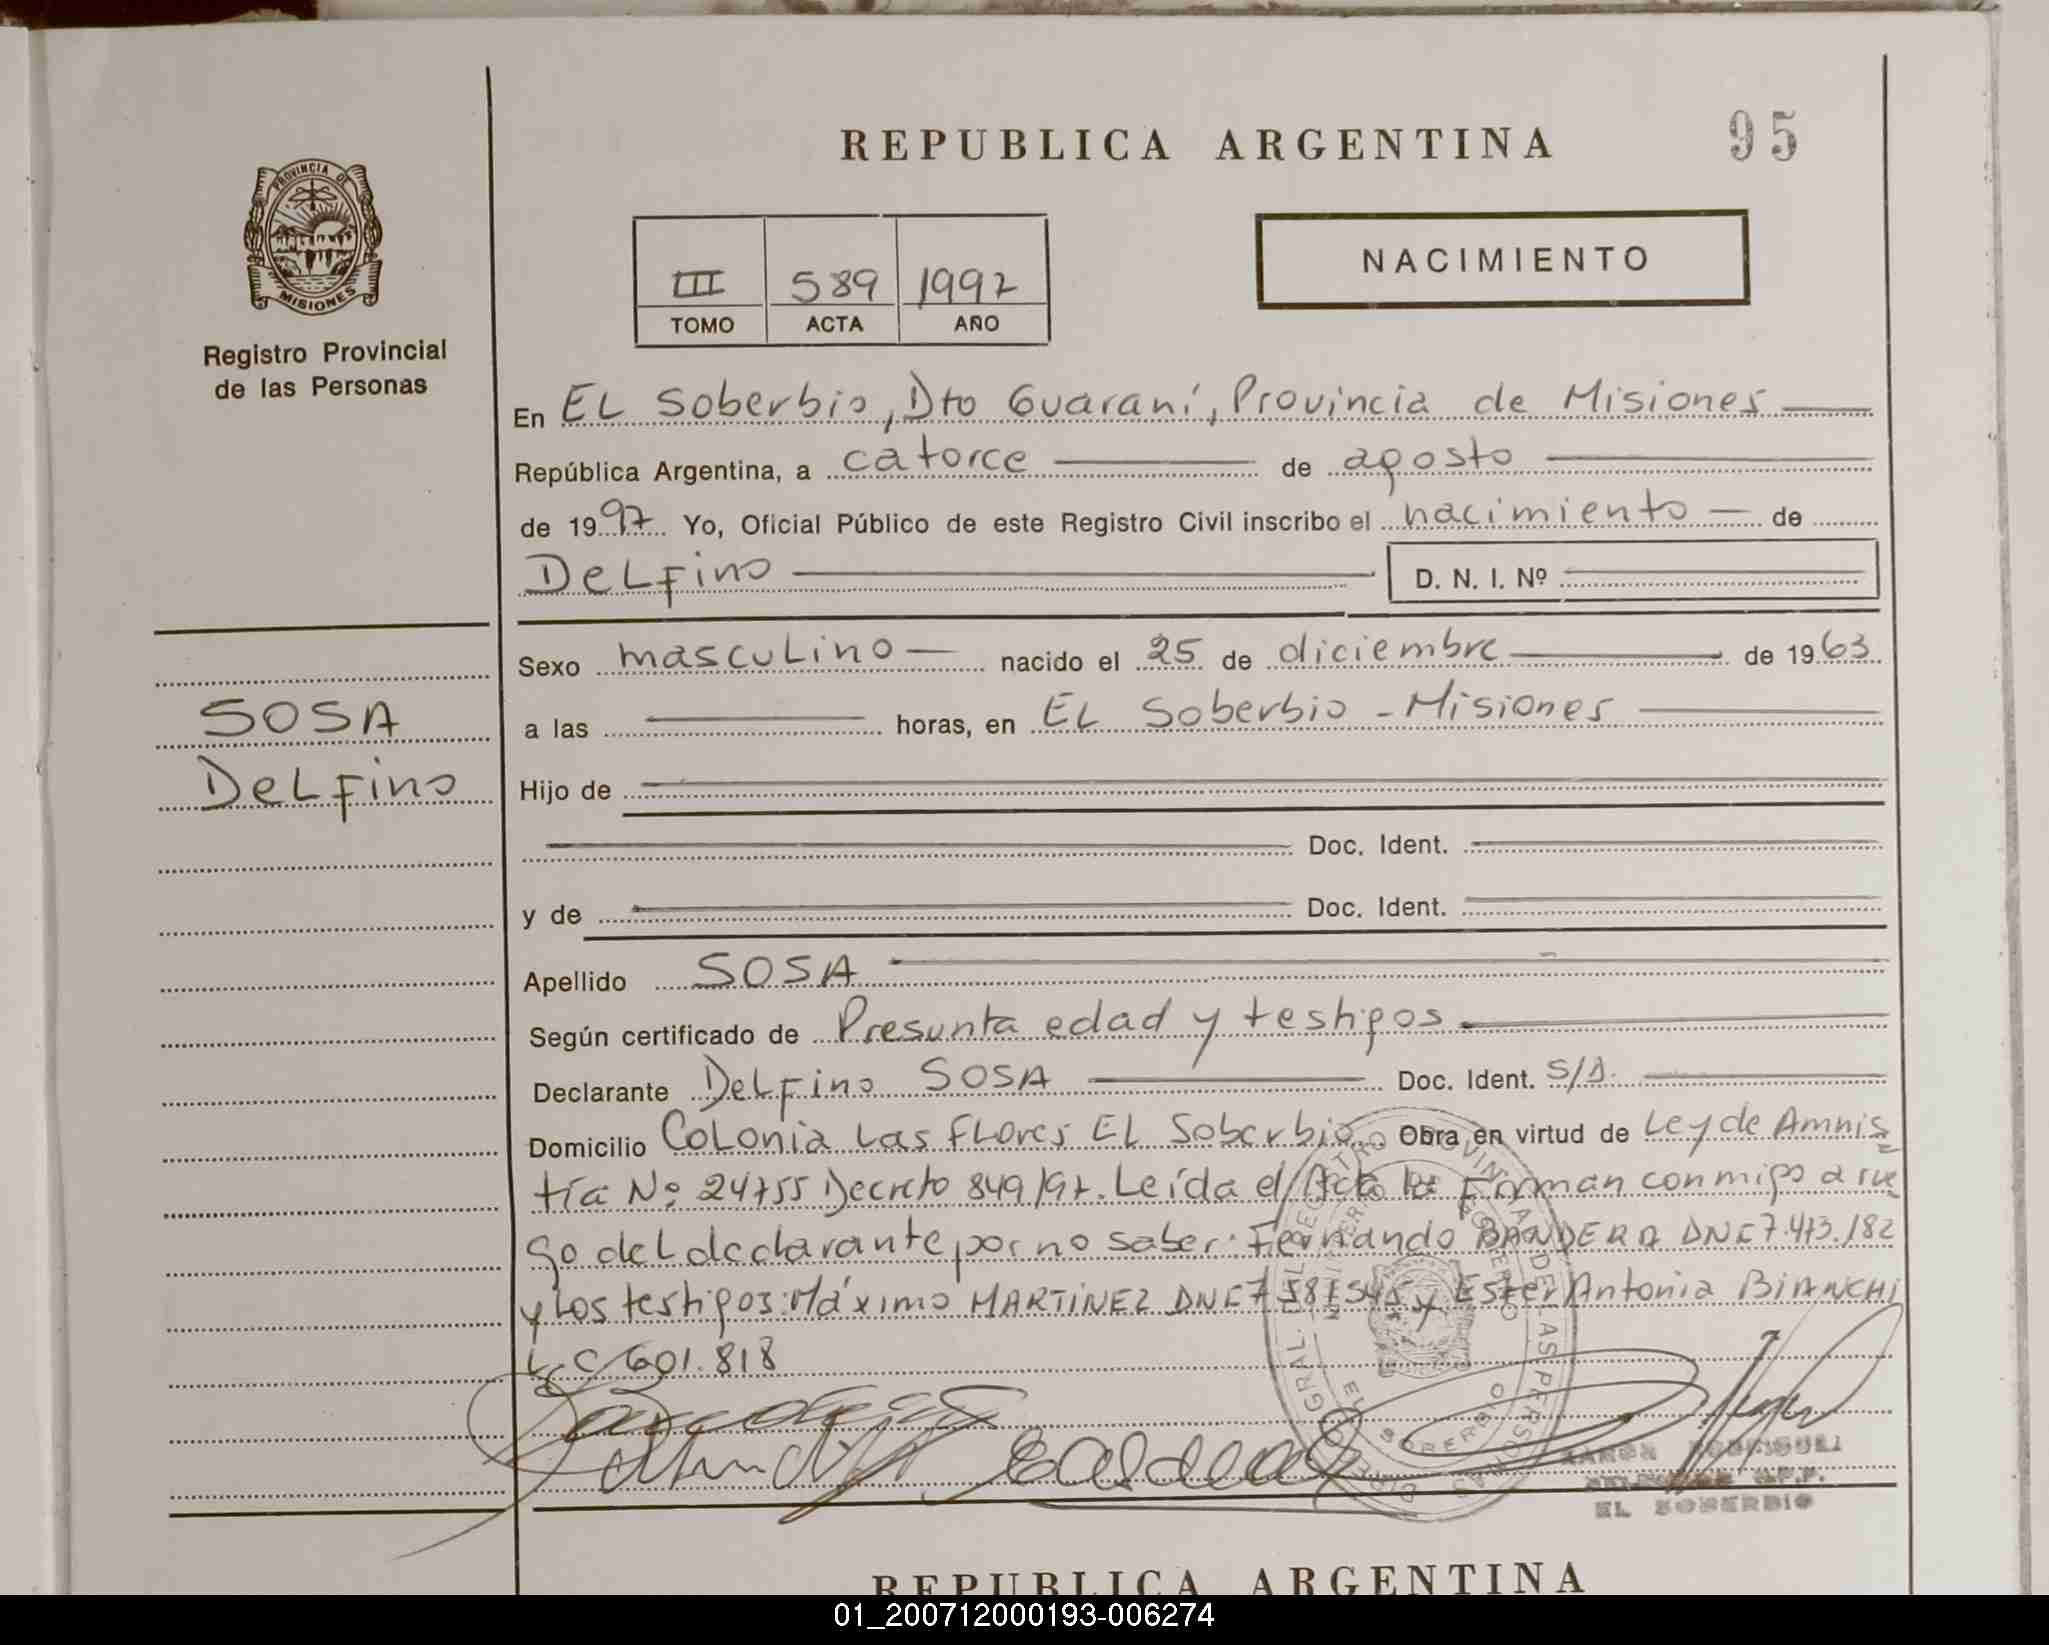 REPUBLICA ARGENTINA
95
PROVINCIA DE
MISIONES
Registro Provincial
de las Personas
III 589 1997
TOMO ACTA AÑO
NACIMIENTO
En EL Soberbio, Dto Guaraní, Provincia de Misiones
República Argentina, a catorce de agosto
de 1997 Yo, Oficial Público de este Registro Civil inscribo el nacimiento de
DeLfino D. N. I. Nº
Sexo mascuLino nacido el 25 de diciembre de 1963
a las horas, en EL Soberbio - Misiones
SOSA
DeLfino
Hijo de
Doc. Ident.
y de Doc. Ident.
Apellido SOSA
Según certificado de Presunta edad y testigos
Declarante DeLfino SOSA Doc. Ident. S/D.
Domicilio CoLonia Las FLores EL Soberbio. Obra en virtud de Ley de Amnis
tía Nº 24755 Decreto 849/97. Leída el Acta la Firman conmigo a rue
go deL declarante por no saber: Fernando BANDERA DNI 7.473.182
y Los testigos: Máximo MARTINEZ DNI 7 y Ester Antonia BIANCHI
L.C 601.818
EL SOBERBIO
REPUBLICA ARGENTINA
01_200712000193-006274